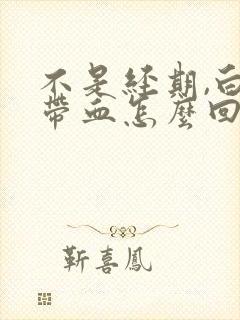 不是经期,白
带血怎麼回
靳喜鳳